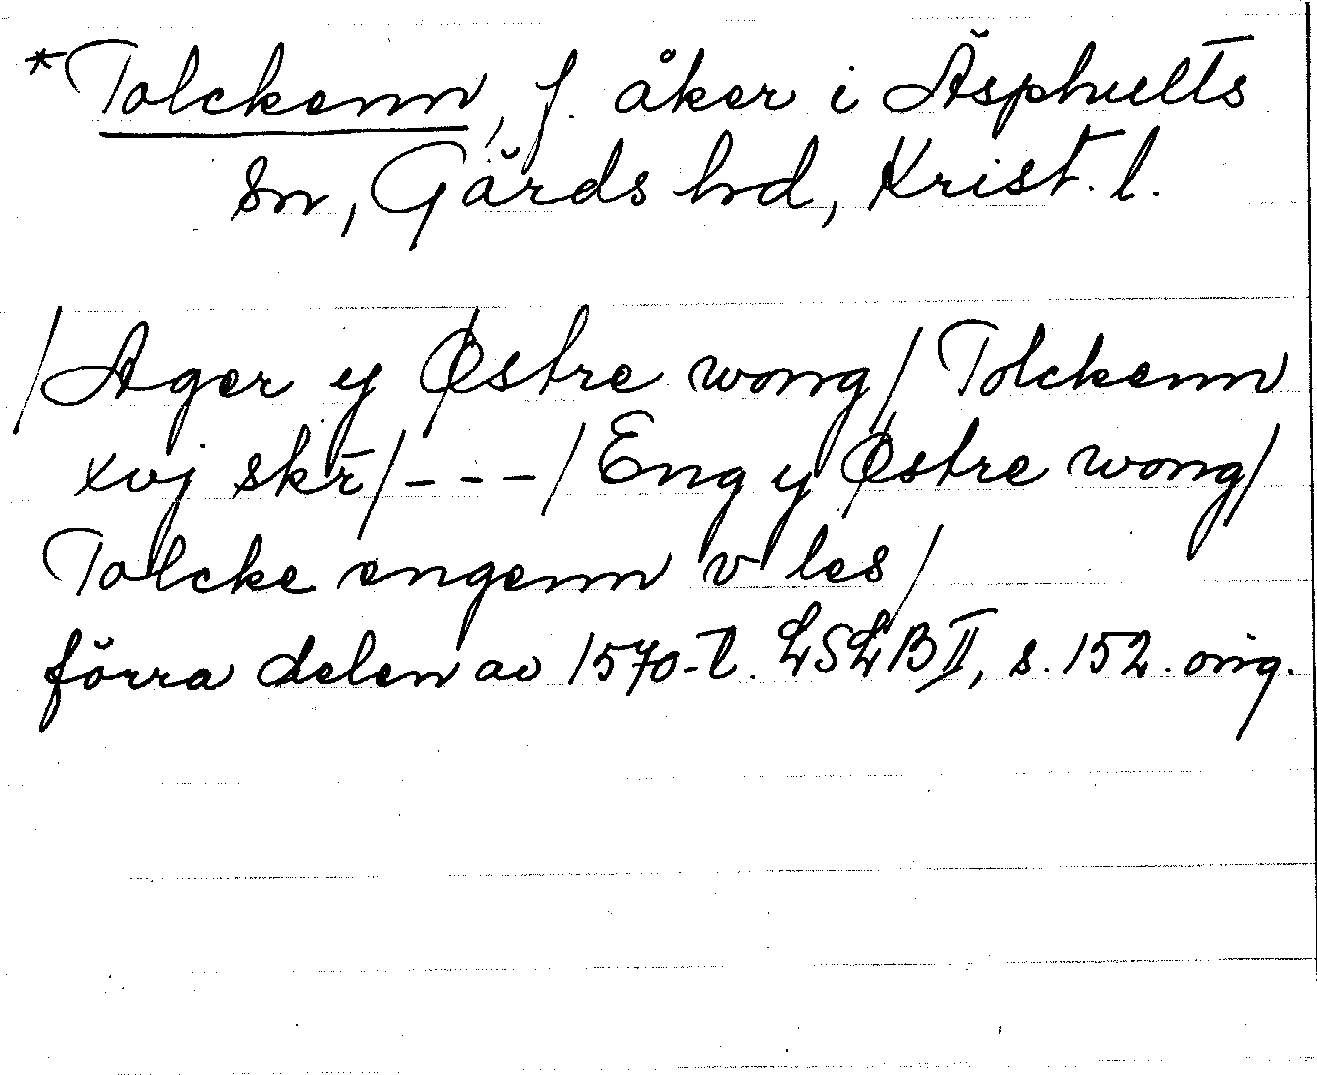 *Tolckenn, f. åker i Äsphults
sn, Gärds hd, Krist. l.
/Ager y Østre wong/ Tolckenn
xvj skr̄/---/Eng y Østre wong/
Tolcke engenn v les/
förra delen av 1570-t. LSLB II, s. 152. orig.